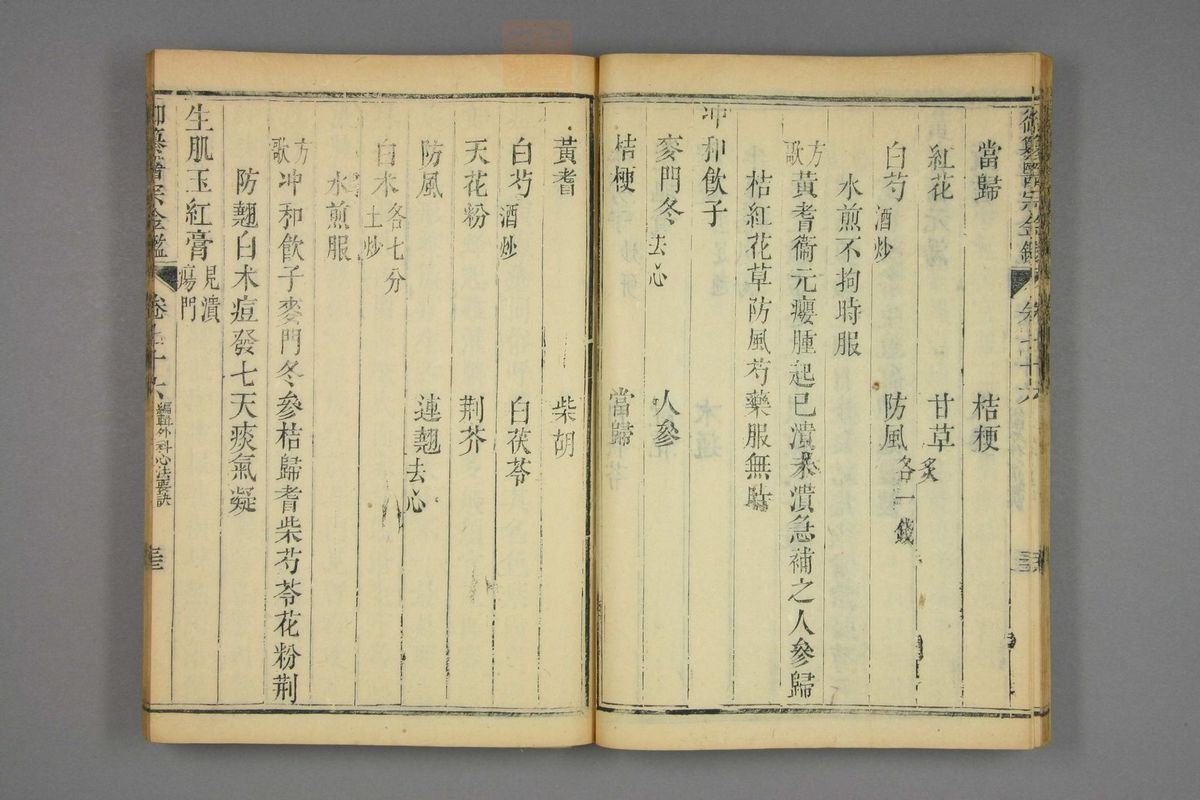 當歸 桔梗
紅花 甘草炙
白芍酒炒 防風各一錢
水煎不拘時服
方歌 黃耆衞元癭腫起已潰未潰急補之人參歸
桔紅花草防風芍藥服無時
冲和飲子
麥門冬去心 人參
桔梗 當歸
黃耆 柴胡
白芍酒炒 白茯苓
天花粉 荆芥
防風 連翹去心
白术各七分土炒
水煎服
方歌 冲和飲子麥門冬參桔歸耆柴芍苓花粉荆
防翹白术痘發七天痰氣凝
生肌玉紅膏見潰瘍門
御纂醫宗金鑑 卷七十六 編輯外科心法要訣